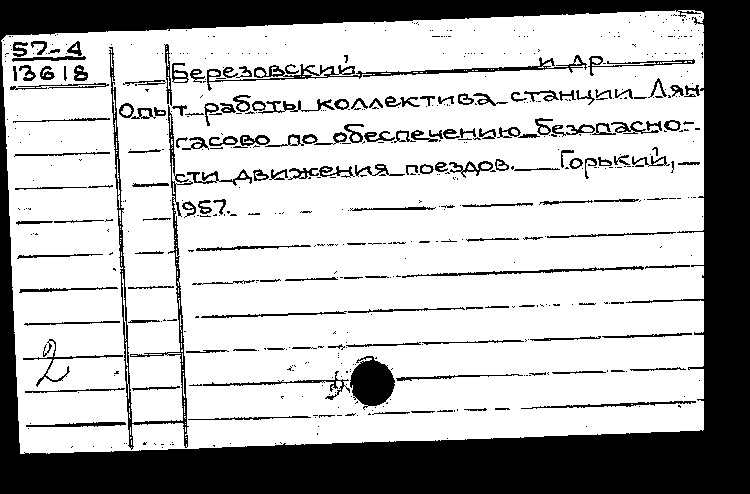 57-4
13618
Березовский, и др.
Опыт работы коллектива станции Лян-
гасово по обеспечению безопасно-
сти движения поездов. Горький,
1957.
2